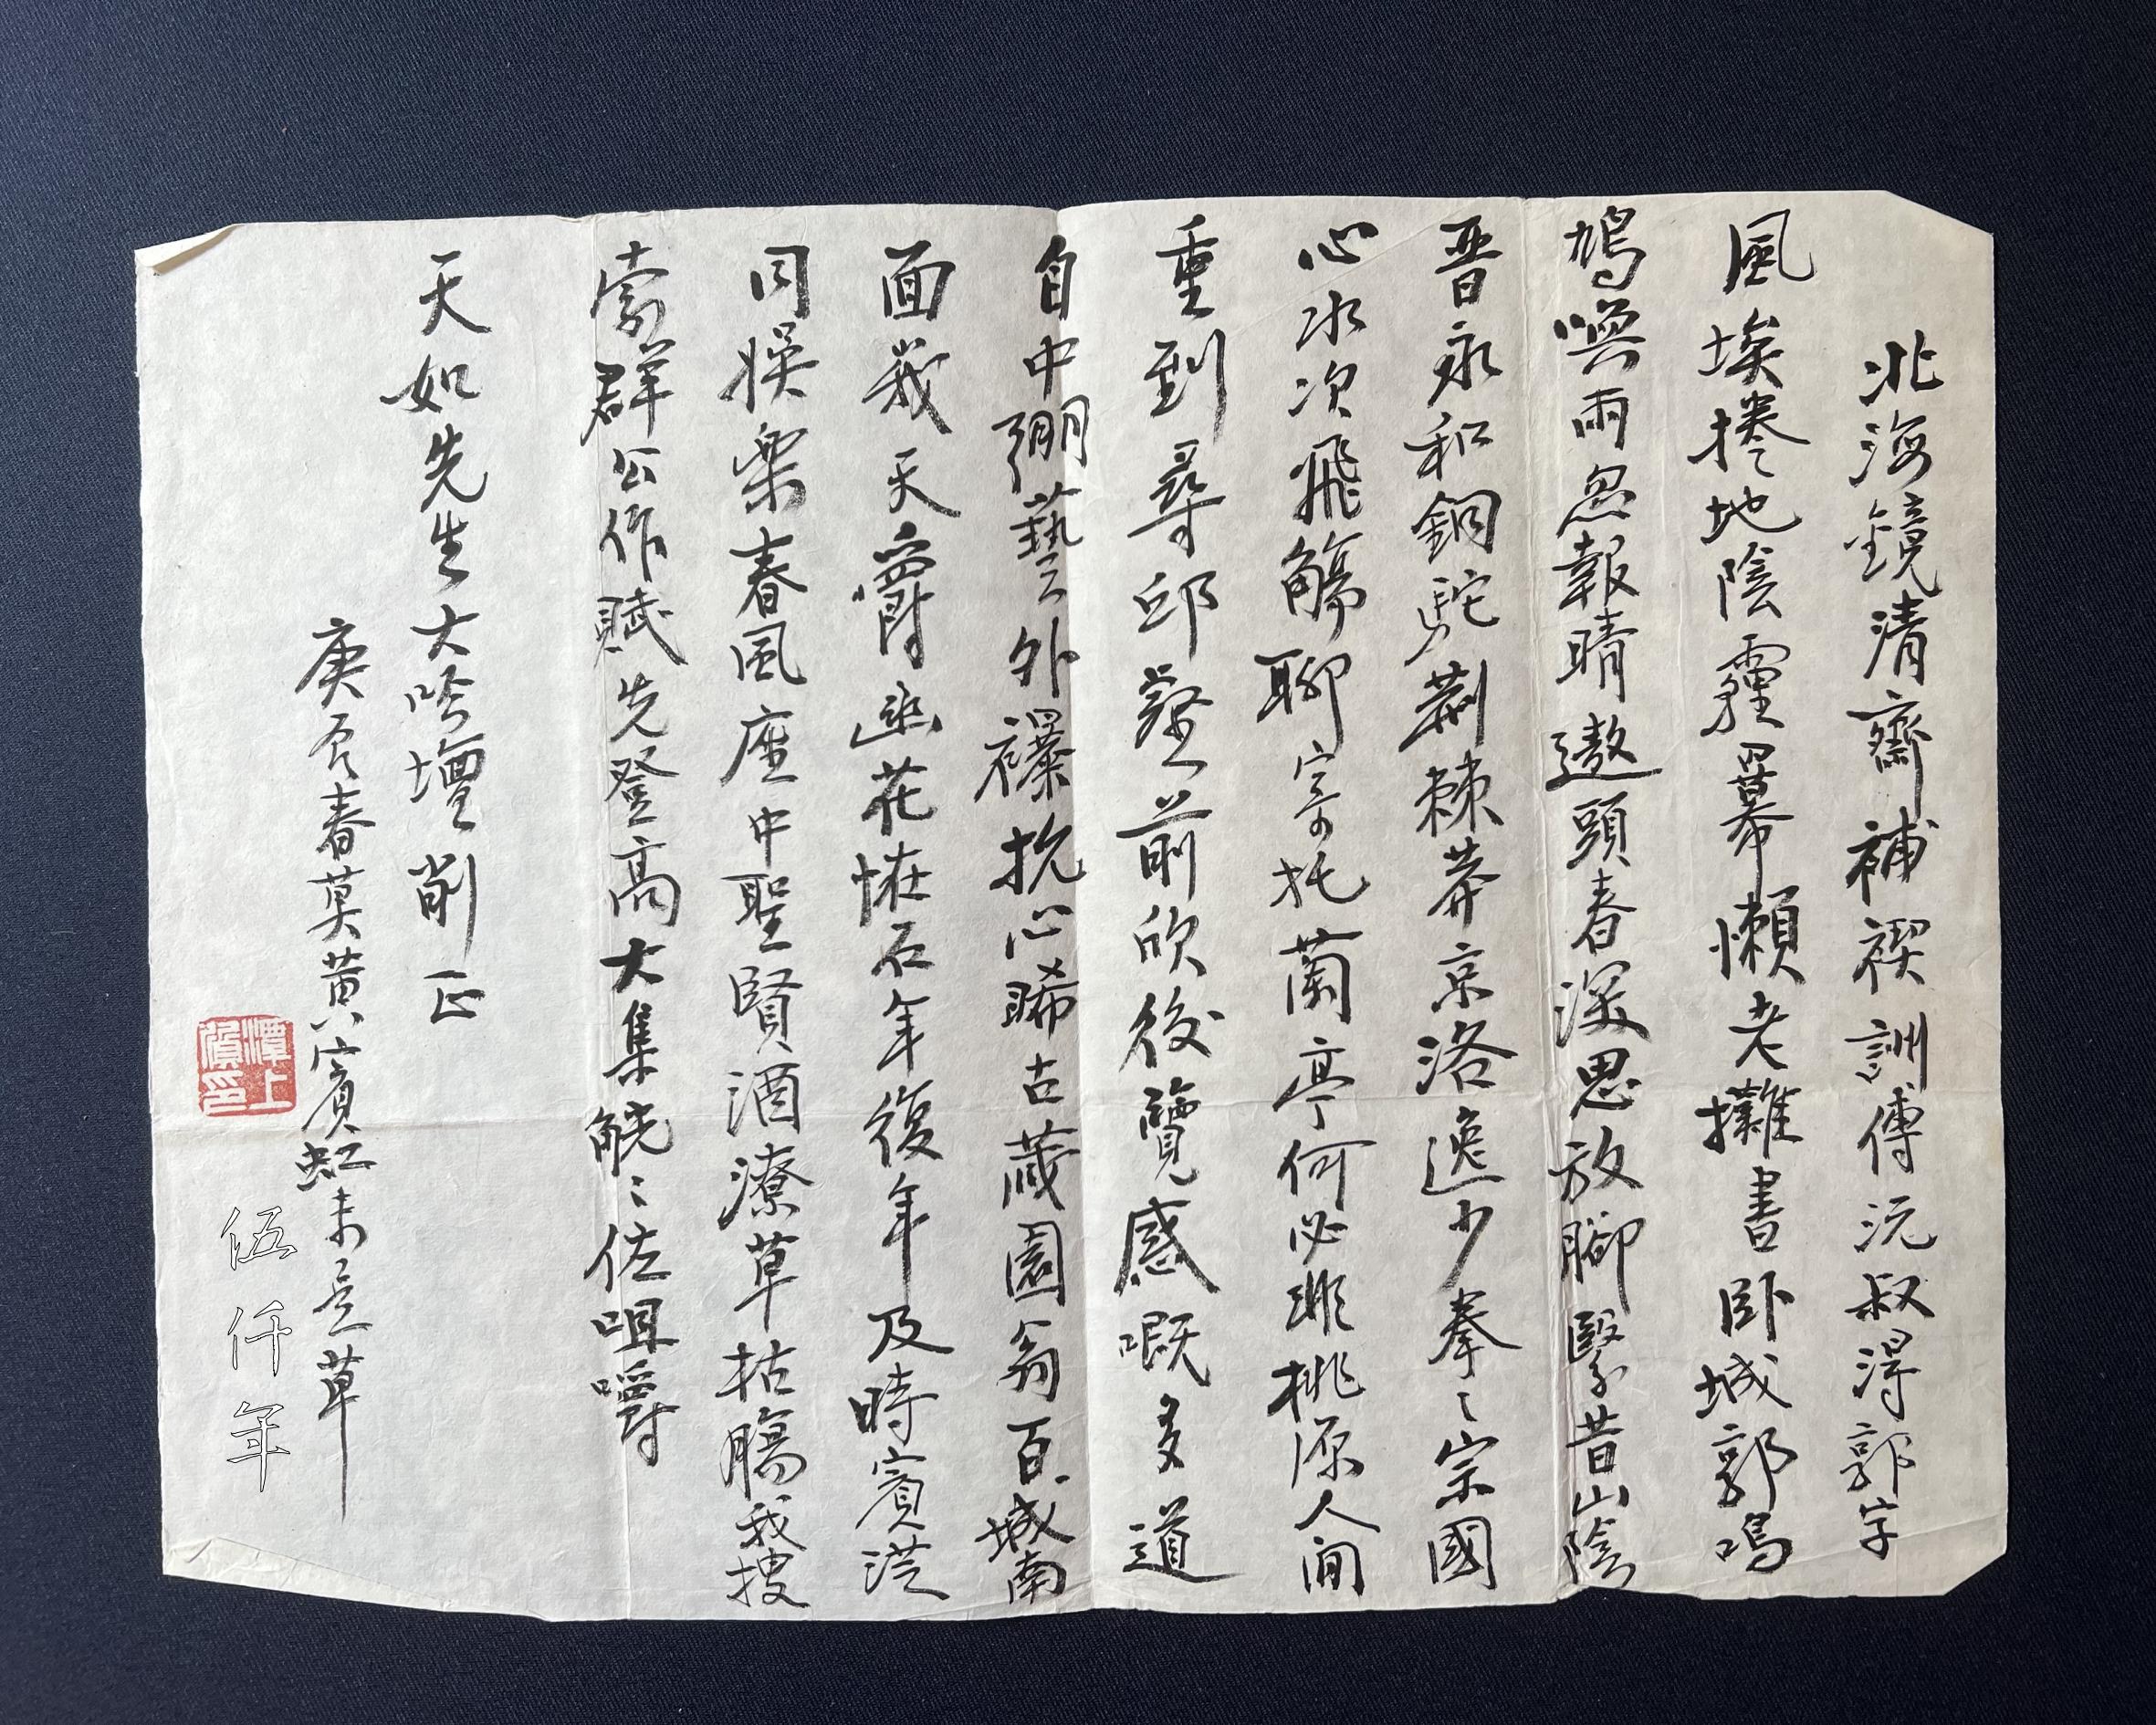 北海鏡清齋補禊詶傅沅叔得郭字
風埃捲地陰霾羃懶老攤書臥城郭鳴
鳩喚雨忽報晴遨頭春深思放腳緊昔山陰
晋永和銅駝荆棘莽京洛逸少拳〻宗國
心水次飛觴聊寄托蘭亭何必非桃源人间
重到尋邱壑前欣後覽感嘅多道
自中弸藝外襮抗心睎古蔵園翁百城南
面我天爵幽花怪石年復年及時賓從
同娱樂春風座中聖賢酒潦草枯腸我搜
索群公作賦先登高大集觥〻佐咀嚼
天如先生大吟壇削正
庚辰春莫黄賓虹未定草
潭上
質印
伍仟年